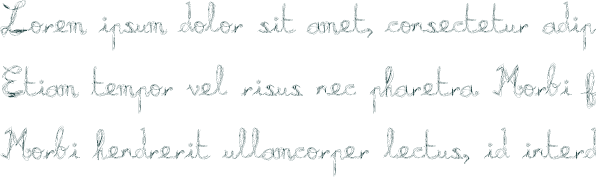 Lorem ipsum dolor sit amet, consectetur adip
Etiam tempor vel risus nec pharetra. Morbi f
Morbi hendrerit ullamcorper lectus, id interd